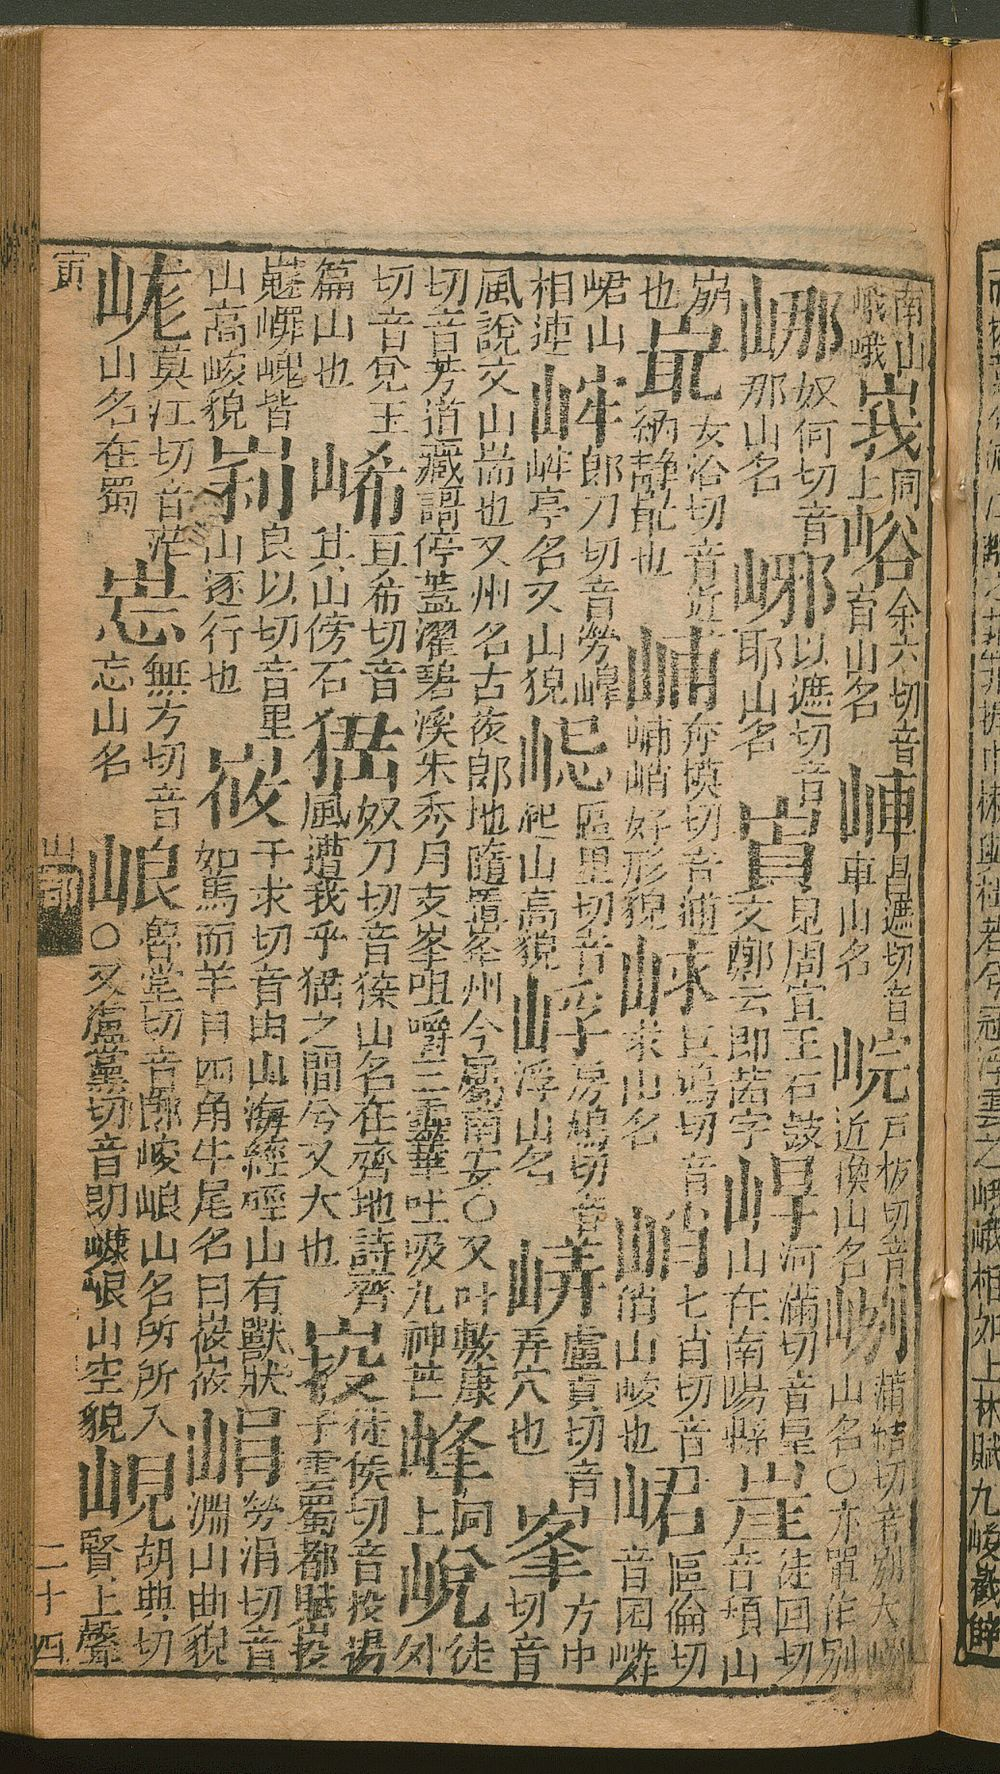 南山峨峨峩同上峪余六切音育山名昌遮切音車山名戶板切音近渙山名蒲結切音別大山名○亦單作別
奴何切音那山名以遮切音耶山名峕見周宣王石鼓文鄭云即諾字河滿切音山在南陽縣徒回切音頹山
崩也女洽切音近納靜也峬奔模切音逋峬峭好形貌巨鳩切音求山名峭七肖切音俏山峻也峮區倫切音囷嶙
峮山相連郎刀切音勞亭名又山貌區里切音山高貌房鳩切音浮山名盧貢切音弄穴也峯方中切音
風說文山耑也又州名古夜郎地隨置峯州今屬南安○又叶敷康切音芳道藏謌停蓋濯碧溪朱秀月支峯咀嚼三靈華吐吸九神芒峰同上徒外
切音兌玉篇山也亘希切音其山傍石峱奴刀切音猱山名在齊地詩齊風遭我乎峱之間兮又犬也徒侯切音投揚子雲蜀都賦
皆山高峻貌峛良以切音里山逐行也峳于求切音由山海經山有獸狀如馬而羊目四角牛尾名曰峳峳勞涓切音淵山曲貌
莫江切音茫山名在蜀無方切音忘山名峎魯堂切音郎峻峎山名所所入○又盧黨切音朗峎山空貌峴胡典切賢上聲
寅
山部
二十四